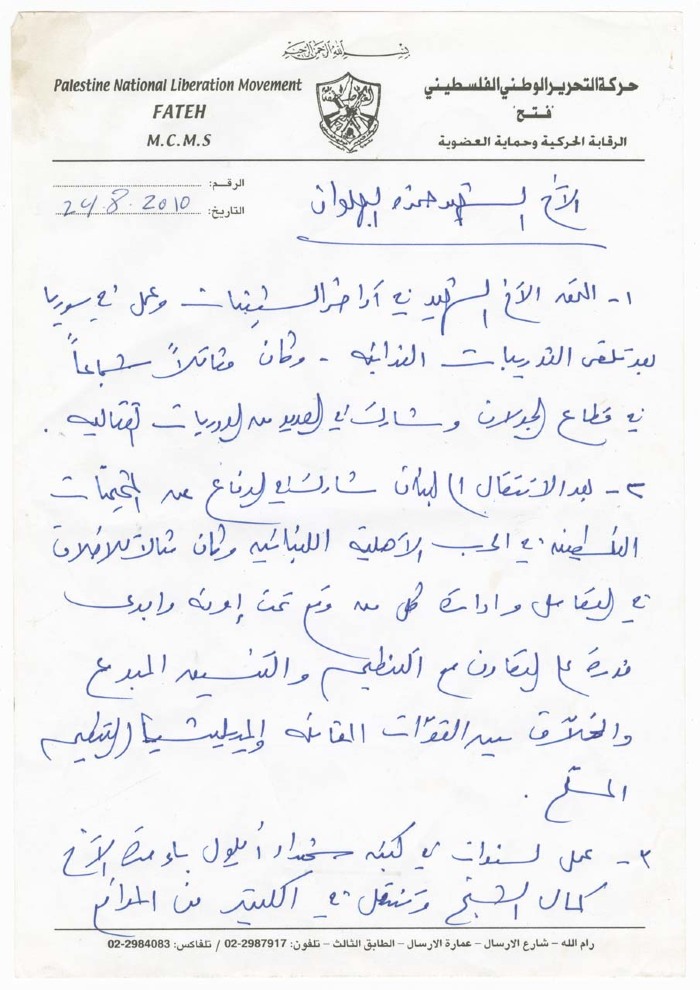 بسم الله الرحمن الرحيم
Palestine National Liberation Movement
FATEH
M.C.M.S
حركة التحرير الوطني الفلسطيني
"فتح"
الرقابة الحركية وحماية العضوية
الرقم:
التاريخ: 24.8.2010
الأخ الشهيد حمزه البهلوان
١- التحق الأخ الشهيد في أواخر الستينات وعمل في سوريا
بعد تلقي التدريبات الفدائية - وكان مقاتلاً شجاعاً
في قطاع الجولان وشارك في العديد من الدوريات القتاليه .
٢- بعد الانتقال الى لبنان شارك في الدفاع عن المخيمات
الفلسطينيه في الحرب الأهلية اللبنانيه وكان مثالاً للاخلاق
في التعامل وادارة كل من وقع تحت إمرته وابدى
قدرة على التعاون مع التنظيم والتنسيق المبدع
والخلاّق بين القوّات المقاتله والميليشيا التنظيم
المسلّح .
٣- عمل لسنوات في كتيبه شهداء أيلول بإمرة الأخ
كمال الشيخ وتنقل في الكثير من المواقع
رام الله – شارع الارسال – عمارة الارسال – الطابق الثالث – تلفون: 02-2987917 / تلفاكس: 02-2984083